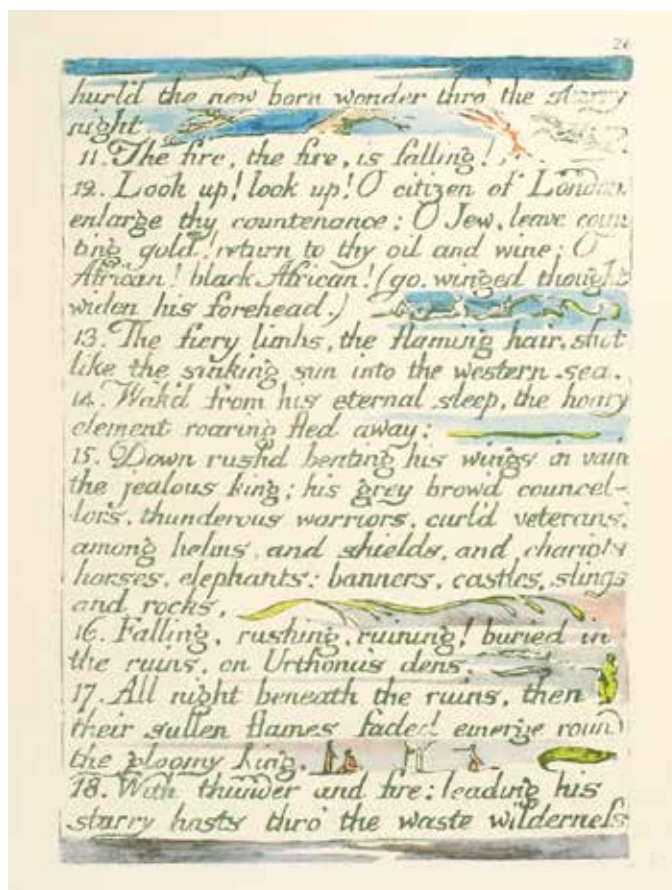 26
hurld the new born wonder thro' the starry
night.
11. The fire, the fire, is falling!
12. Look up! look up! O citizen of London.
enlarge thy countenance: O Jew, leave coun
ting gold! return to thy oil and wine; O
African! black African! (go. winged thought
widen his forehead.)
13. The fiery limbs, the flaming hair, shot
like the sinking sun into the western sea.
14. Wak'd from his eternal sleep, the hoary
element roaring fled away:
15. Down rushd beating his wings in vain
the jealous king; his grey brow'd councel-
lors, thunderous warriors, curl'd veterans,
among helms, and shields, and chariots
horses, elephants: banners, castles, slings
and rocks,
16. Falling, rushing, ruining! buried in
the ruins, on Urthona's dens.
17. All night beneath the ruins, then
their sullen flames faded emerge round
the gloomy king,
18. With thunder and fire: leading his
starry hosts thro' the waste wilderness